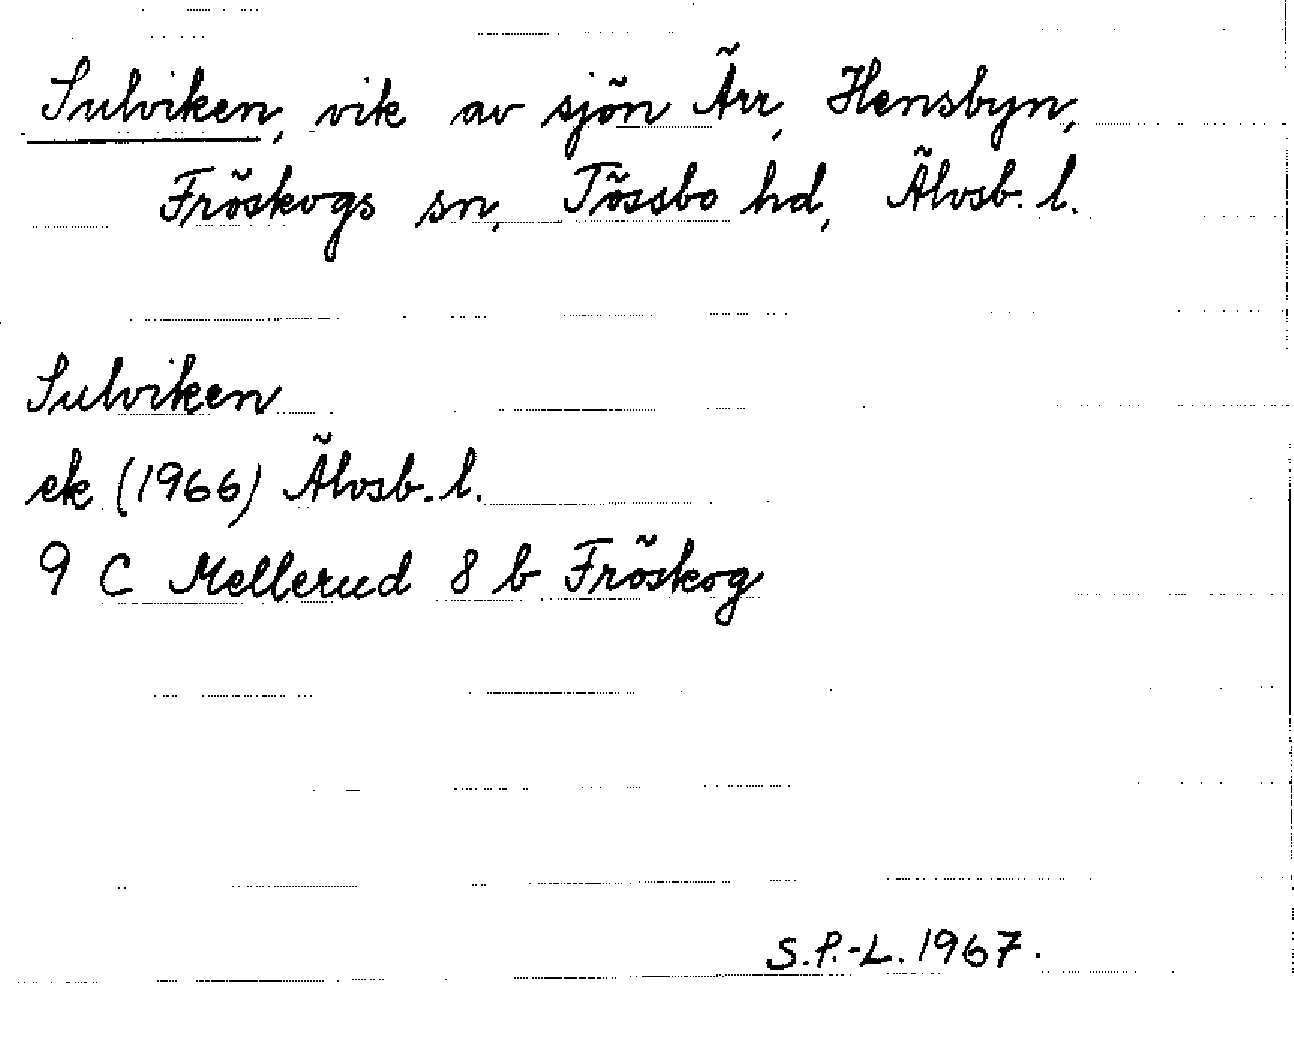 Sulviken, vik av sjön Ärr, Hensbyn,
Fröskogs sn, Tössbo hd, Älvsb. l.
Sulviken
ek (1966) Älvsb. l.
9 C Mellerud 8 b Fröskog
S.P.-L. 1967.